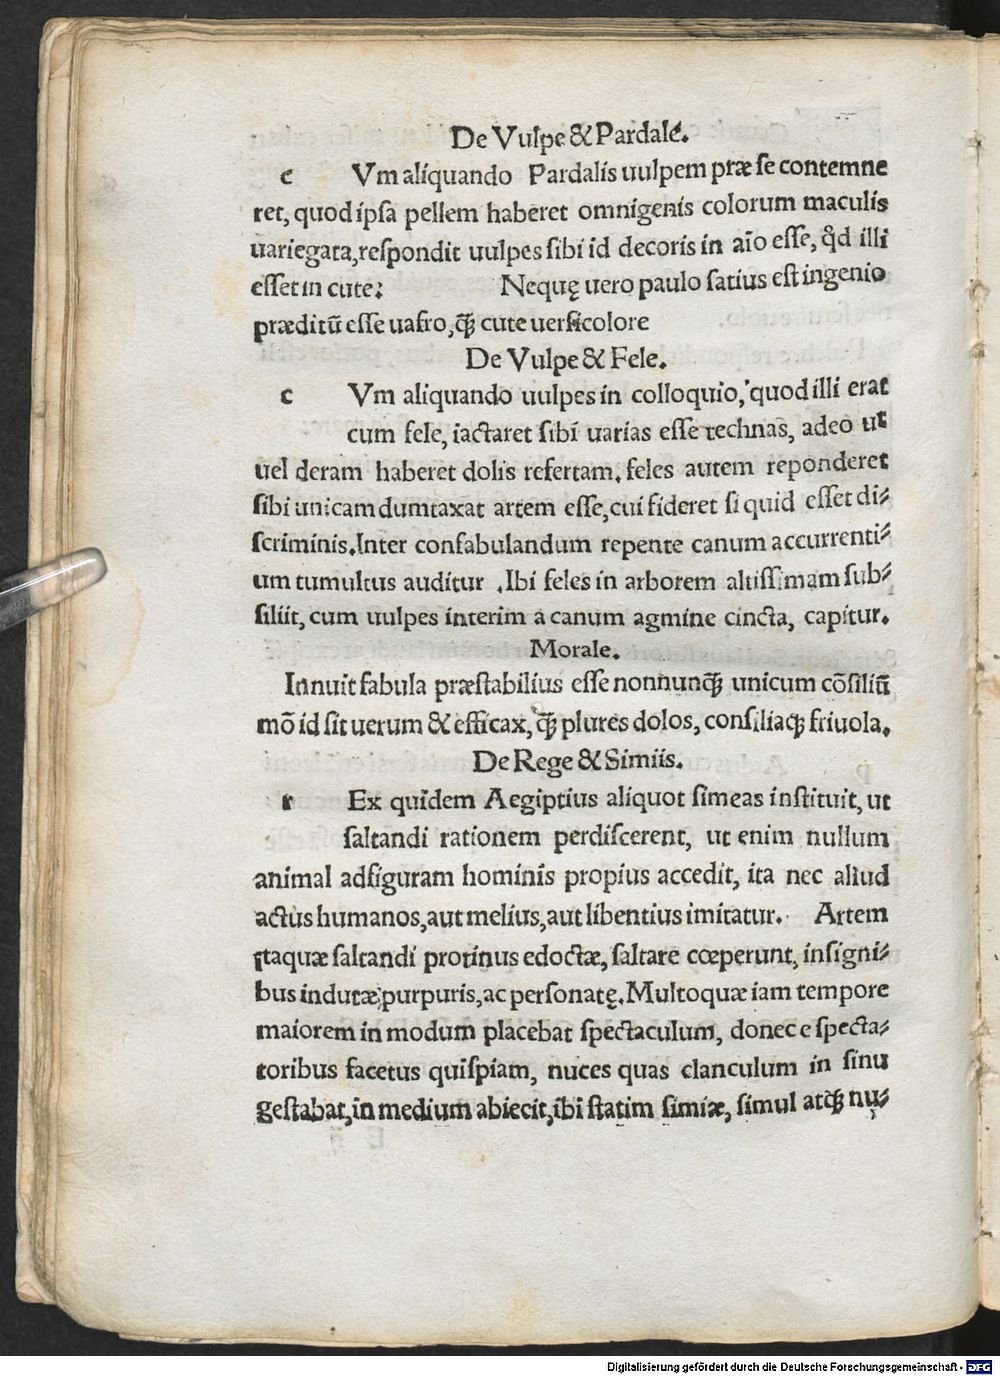 De Vulpe & Pardale.
c Vm aliquando Pardalis uulpem præ se contemne
ret, quod ipsa pellem haberet omnigenis colorum maculis
uariegata, respondit uulpes sibi id decoris in aĩo esse, qđ illi
esset in cute: Nequę uero paulo satius est ingenio
præditũ esse uafro, q̃ cute uersicolore
De Vulpe & Fele.
c Vm aliquando uulpes in colloquio, quod illi erat
cum fele, iactaret sibi uarias esse technas, adeo ut
uel deram haberet dolis refertam. feles autem reponderet
sibi unicam dumtaxat artem esse, cui fideret si quid esset di⸗
scriminis. Inter confabulandum repente canum accurrenti⸗
um tumultus auditur . Ibi feles in arborem altissimam sub⸗
siliit, cum uulpes interim a canum agmine cincta, capitur.
Morale.
Innuit fabula præstabilius esse nonnunq̃ unicum cõsiliũ
mõ id sit uerum & efficax, q̃ plures dolos, consiliaq; friuola.
De Rege & Simiis.
r Ex quidem Aegiptius aliquot simeas instituit, ut
saltandi rationem perdiscerent, ut enim nullum
animal ad figuram hominis propius accedit, ita nec aliud
actus humanos, aut melius, aut libentius imitatur. Artem
itaquæ saltandi protinus edoctæ, saltare cœperunt, insigni⸗
bus indutæ purpuris, ac personatę. Multoquæ iam tempore
maiorem in modum placebat spectaculum, donec e specta⸗
toribus facetus quispiam, nuces quas clanculum in sinu
gestabat, in medium abiecit, ibi statim simiæ, simul atq; nu⸗
Digitalisierung gefördert durch die Deutsche Forschungsgemeinschaft - DFG